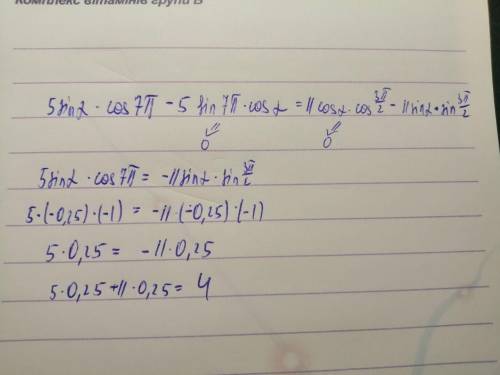 Комплекс вітамінів групи В
5sinα · cos7π − 5 sin7π · cosα = 11 cosα · cos 3π/2 − 11 sinα · sin 3π/2
0 0
5sinα · cos7π = −11sinα · sin 3π/2
5·(−0,25)·(−1) = −11·(−0,25)·(−1)
5·0,25 = −11·0,25
5·0,25+11·0,25= 4